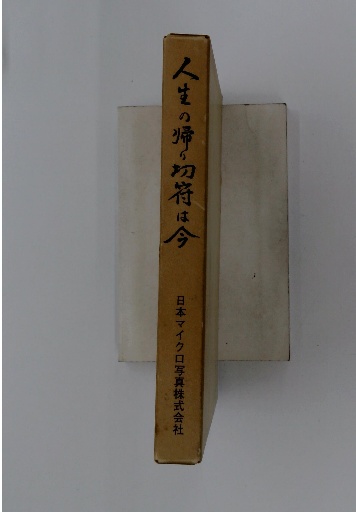 人生の帰り切符は今
日本マイクロ写真株式会社